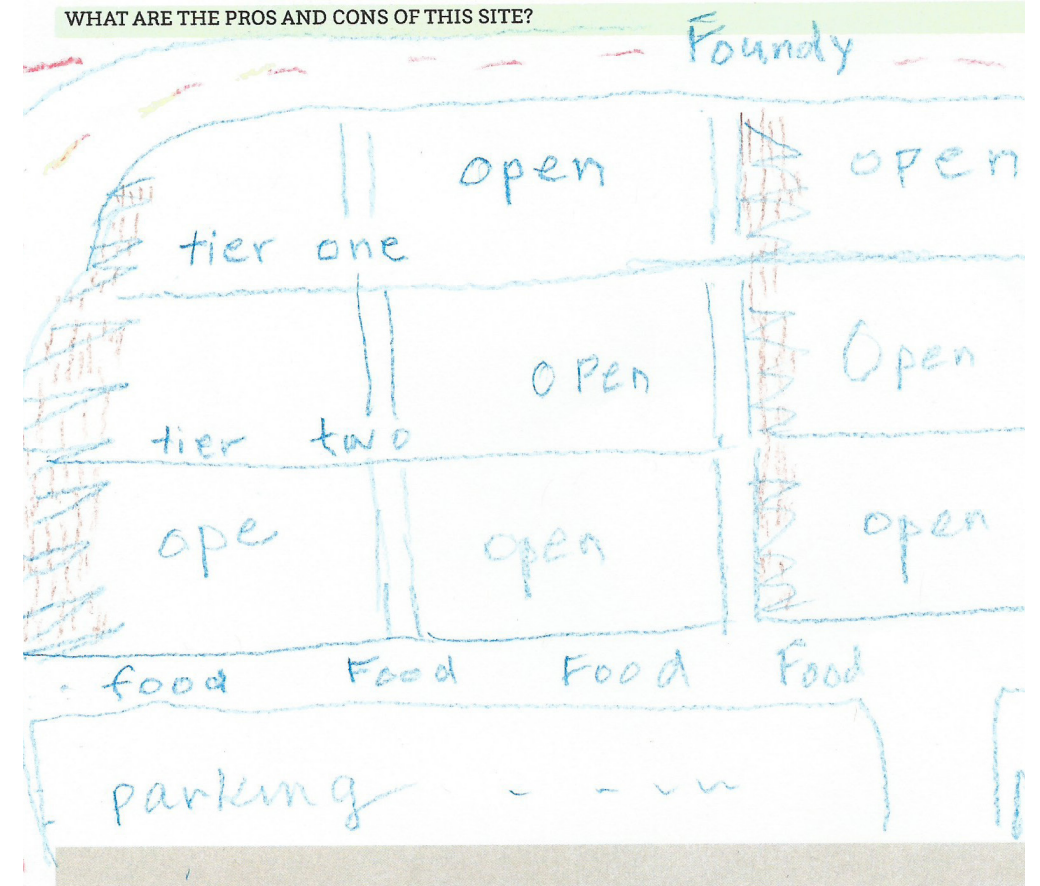 WHAT ARE THE PROS AND CONS OF THIS SITE?
Foundy
open open
tier one
open Open
tier two
ope open open
food Food Food Food
parking